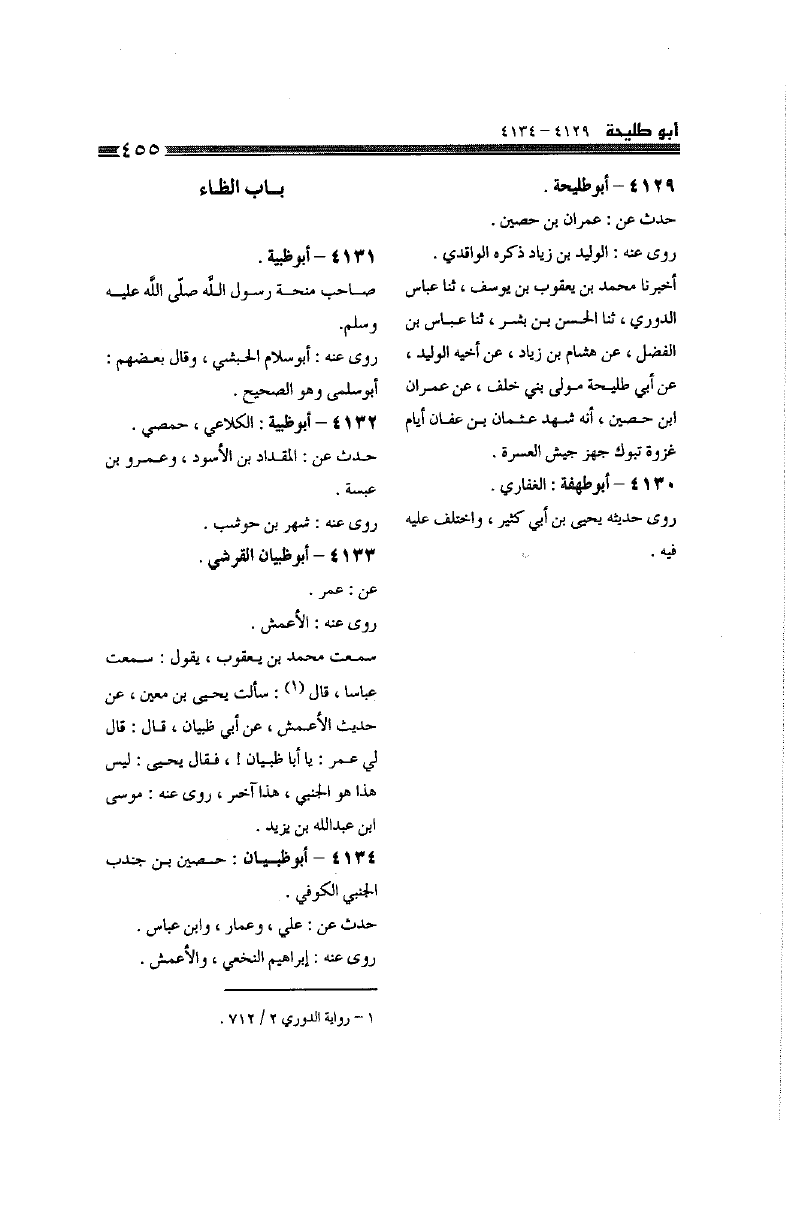 أبو طليحة ٤١٢٩ – ٤١٣٤
٤٥٥
٤١٢٩ – أبو طليحة .
حدث عن : عمران بن حصين .
روى عنه : الوليد بن زياد ذكره الواقدي .
أخبرنا محمد بن يعقوب بن يوسف ، ثنا عباس
الدوري ، ثنا الحسن بن بشر ، ثنا عباس بن
الفضل ، عن هشام بن زياد ، عن أخيه الوليد ،
عن أبي طليحة مولى بني خلف ، عن عمران
ابن حصين ، أنه شهد عثمان بن عفان أيام
غزوة تبوك جهز جيش العسرة .
٤١٣٠ – أبو طهفة : الغفاري .
روى حديثه يحيى بن أبي كثير ، واختلف عليه
فيه .
باب الظاء
٤١٣١ – أبو ظبية .
صاحب منحة رسول اللَّه صلّى اللَّه عليه
وسلم.
روى عنه : أبو سلام الحبشي ، وقال بعضهم :
أبو سلمى وهو الصحيح .
٤١٣٢ – أبو ظبية : الكلاعي ، حمصي .
حدث عن : المقداد بن الأسود ، وعمرو بن
عبسة .
روى عنه : شهر بن حوشب .
٤١٣٣ – أبو ظبيان القرشي .
عن : عمر .
روى عنه : الأعمش .
سمعت محمد بن يعقوب ، يقول : سمعت
عباسا ، قال (١) : سألت يحيى بن معين ، عن
حديث الأعمش ، عن أبي ظبيان ، قال : قال
لي عمر : يا أبا ظبيان ! ، فقال يحيى : ليس
هذا هو الجنبي ، هذا آخر ، روى عنه : موسى
ابن عبدالله بن يزيد .
٤١٣٤ – أبو ظبيان : حصين بن جندب
الجنبي الكوفي .
حدث عن : علي ، وعمار ، وابن عباس .
روى عنه : إبراهيم النخعي ، والأعمش .
١ – رواية الدوري ٢ / ٧١٢ .